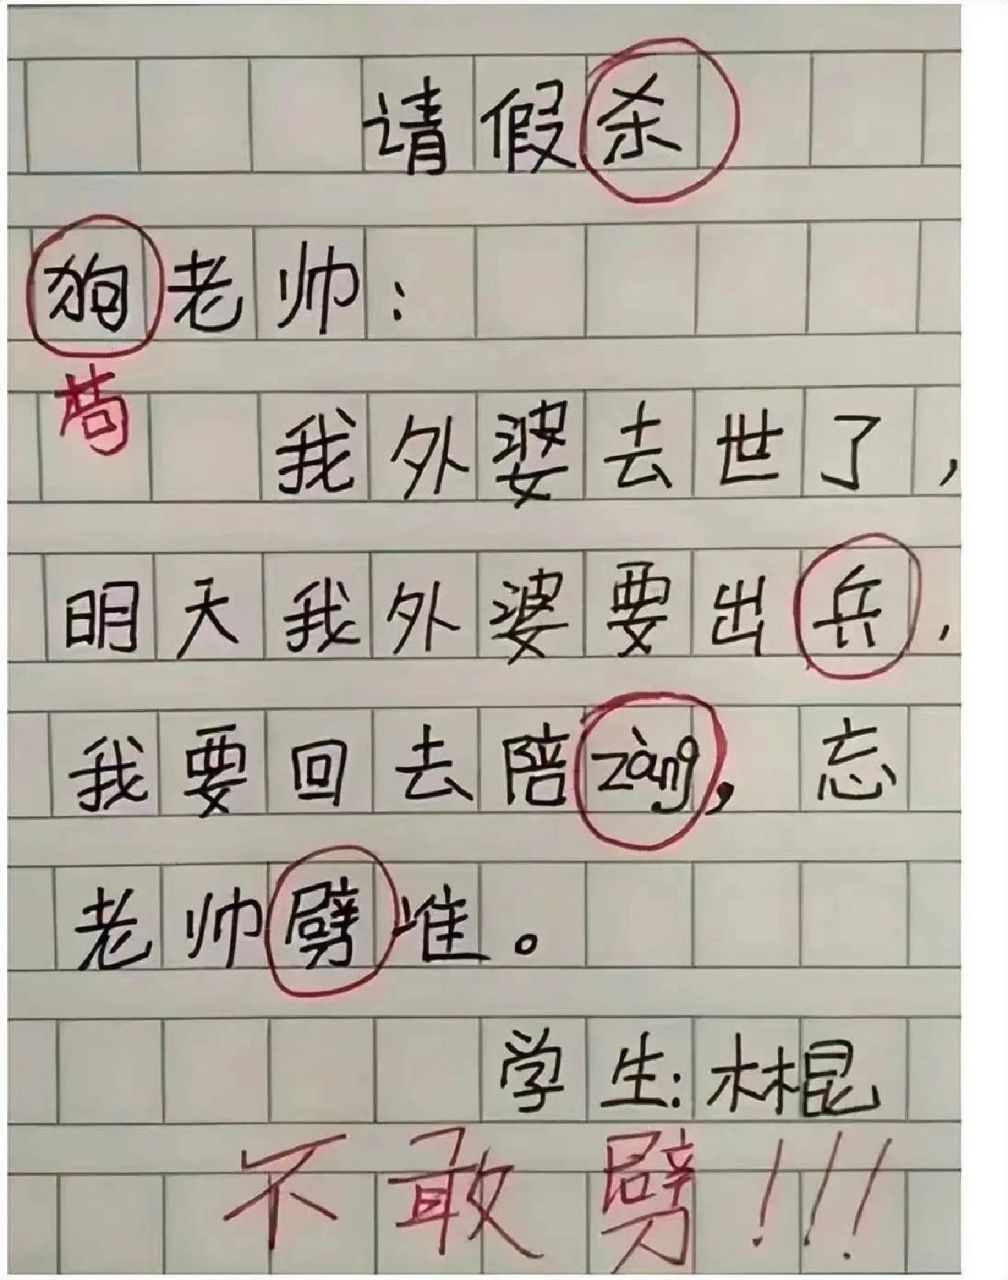 请假杀
狗老帅：
苟
我外婆去世了，
明天我外婆要出兵，
我要回去陪zàng，忘
老帅劈准。
学生：林棍
不敢劈！！！